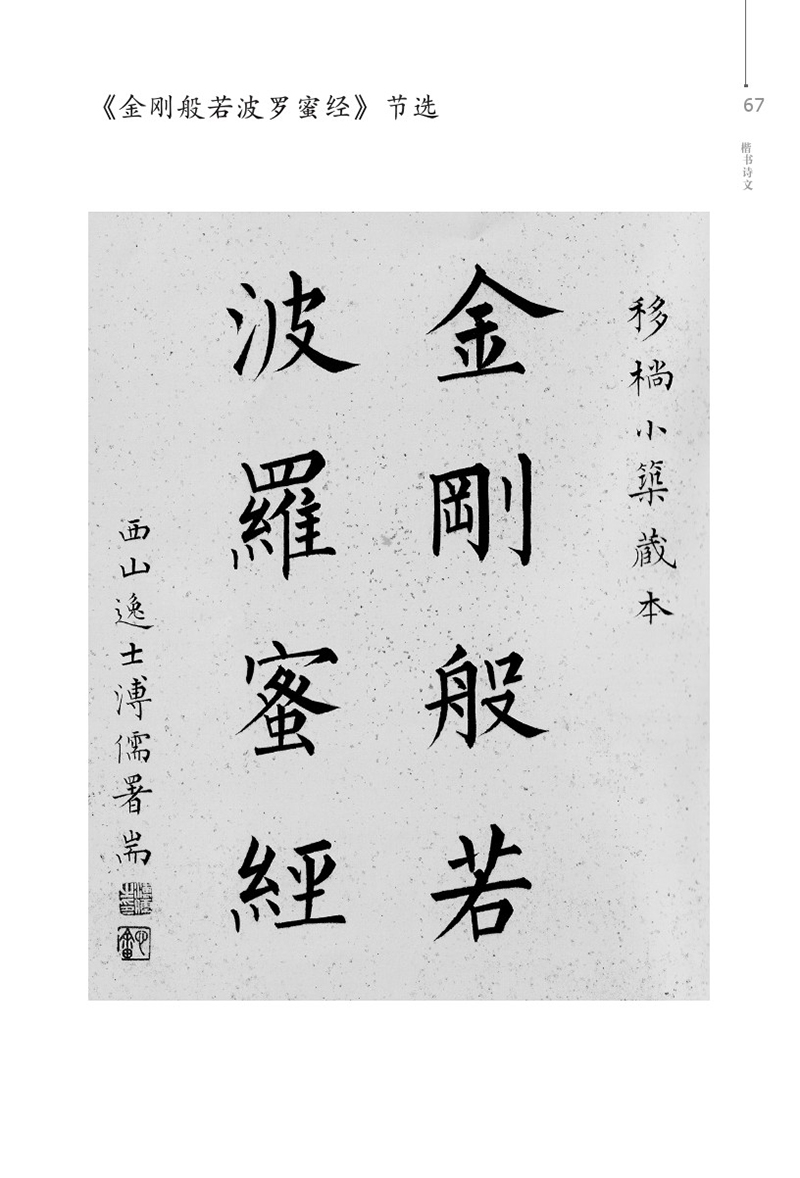 《金刚般若波罗蜜经》节选
67
楷书诗文
移檹小築藏本
金剛般若
波羅蜜經
西山逸士溥儒署耑